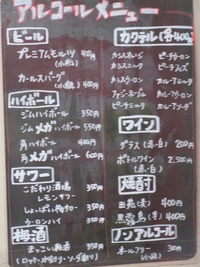 アルコールメニュー
ビール
プレミアムモルツ 400円
(小瓶)
カールスバーグ 400円
(小瓶)
ハイボール
ジムハイボール 350円
ジムメガハイボール 550円
角ハイボール 400円
角メガハイボール 600円
サワー
こだわり酒場 350円
レモンサワー
しょっぱい梅サワー 350円
ウーロンハイ 350円
梅酒
まっこい梅酒 350円
(ロック・水割り・ソーダ割り)
カクテル(各400円)
カシスオレンジ
カシスソーダ
カシスウーロン
ファジーネーブル
ピーチウーロン
ピーチフィズ
カルーアミルク
ワイン
グラス(赤・白) 200円
ボトルワイン 2,500円
(赤・白)
焼酎
田苑(麦) 400円
黒霧島(芋) 400円
ノンアルコール
オールフリー 350円
(小瓶)